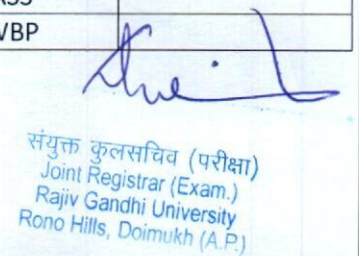 VBP
संयुक्त कुलसचिव (परीक्षा)
Joint Registrar (Exam.)
Rajiv Gandhi University
Rono Hills, Doimukh (A.P.)